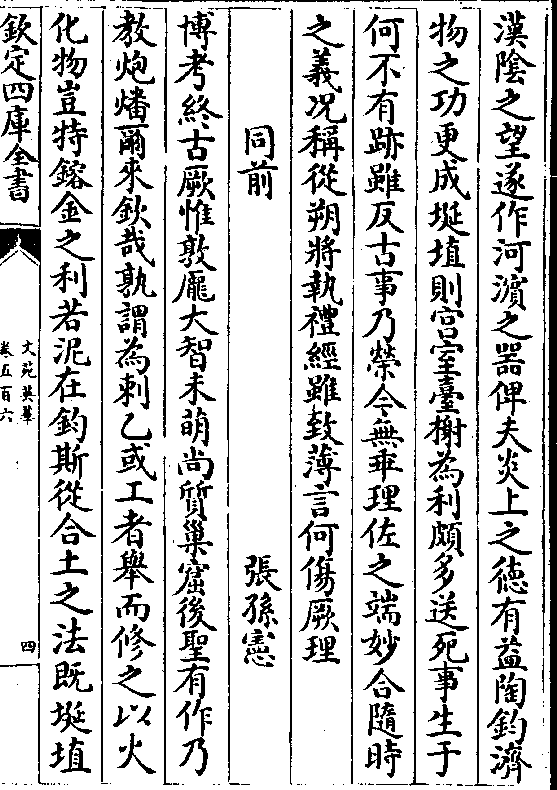 漢陰之望遂作河濵之器俾夫炎上之徳有益陶鈞濟
物之功更成埏埴則宫室臺榭為利頗多送死事生于
何不有跡雖反古事乃榮今無乖理佐之端妙合隨時
之義况稱從朔將執禮經雖致薄言何傷厥理
同前 張孫憲
博考終古厥惟敦龎大智未萌尚質巢窟後聖有作乃
教炮燔爾來欽哉孰謂為刺乙或工者舉而修之以火
化物豈特鎔金之利若泥在鈞斯從合土之法既埏埴
欽定四庫全書
文苑英華
卷五百六
四